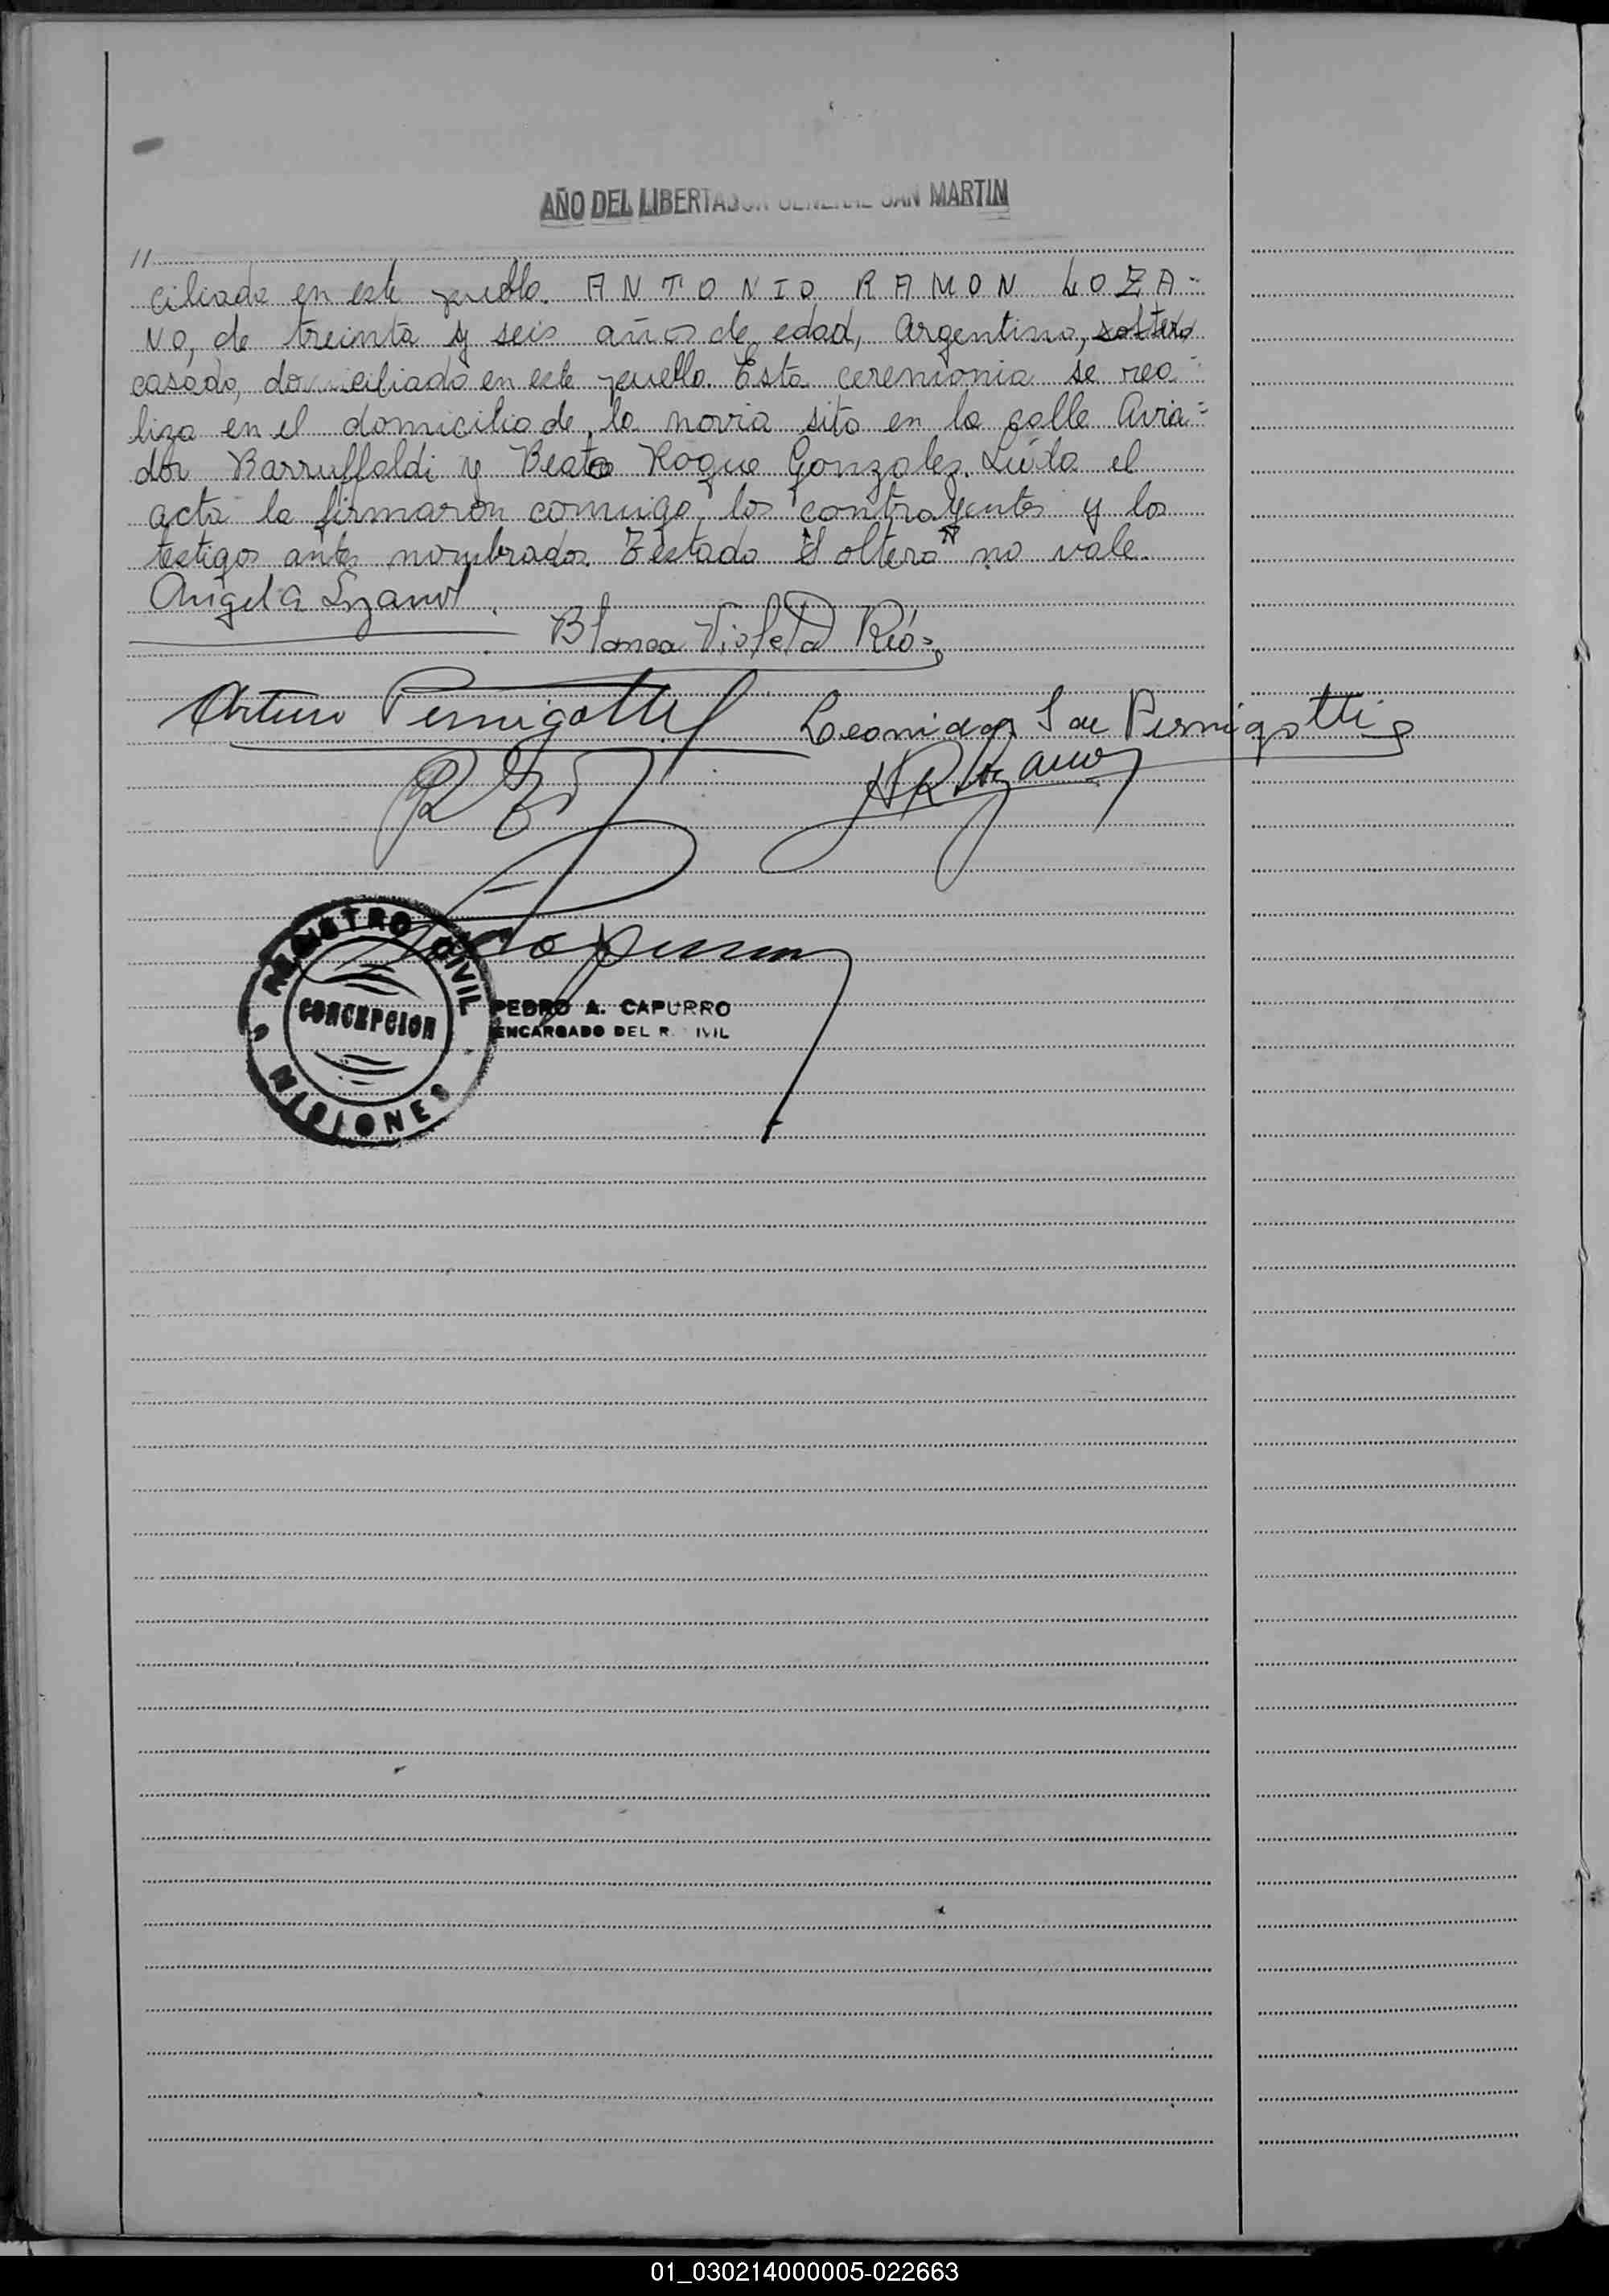 AÑO DEL LIBERTADOR GENERAL SAN MARTIN
//
ciliado en este pueblo. ANTONIO RAMON LOZA=
NO, de treinta y seis años de edad, Argentino, soltero
casado, domiciliado en este pueblo. Esta ceremonia se rea=
liza en el domicilio de la novia sito en la calle Avia=
dor Barruffaldi y Beato Roque Gonzales. Leída el
acta la firmaron conmigo los contrayentes y los
testigos antes nombrados. Testado "Soltero" no vale.
Angela Lozano
Blanca Violeta Ríos
Arturo Pernigotti
Leonidas S de Pernigotti
ARLozano
REGISTRO CIVIL
CONCEPCION
MISIONES
PEDRO A. CAPURRO
ENCARGADO DEL R. CIVIL
01_030214000005-022663